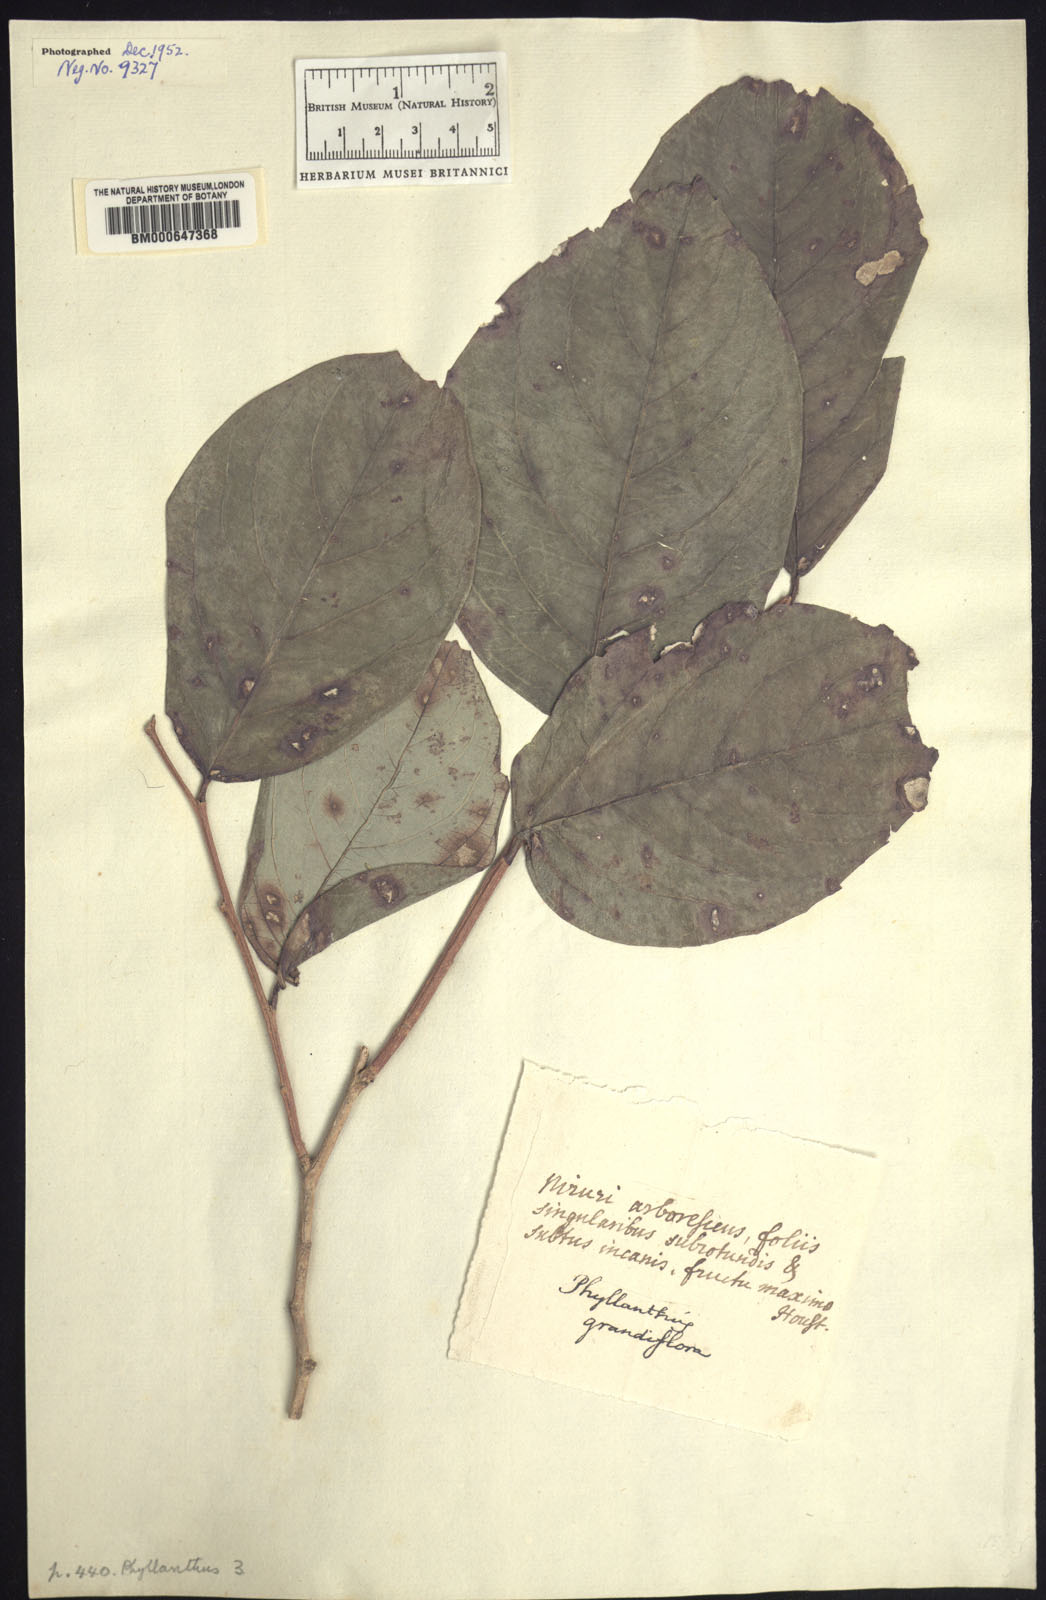 Photographed Dec. 1952.
Neg. No. 9327
1 2
BRITISH MUSEUM (NATURAL HISTORY)
1 2 3 4 5
HERBARIUM MUSEI BRITANNICI
THE NATURAL HISTORY MUSEUM, LONDON
DEPARTMENT OF BOTANY
BM000647368
Niruri arborescens, foliis
singularibus subrotundis &
subtus incanis, fructu maximo
Houst.
Phyllanthus
grandiflora
p. 440. Phyllanthus 3